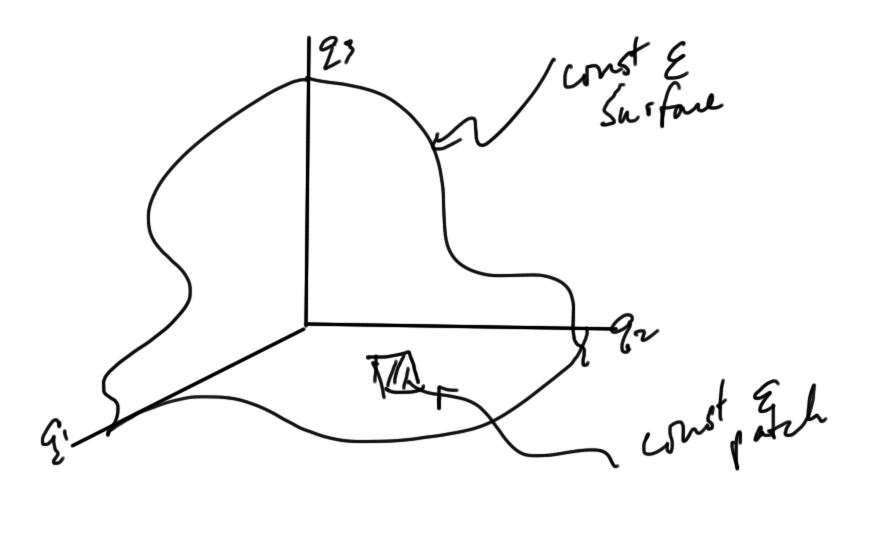 q3
const ε
surface
q2
q1
const ε
patch